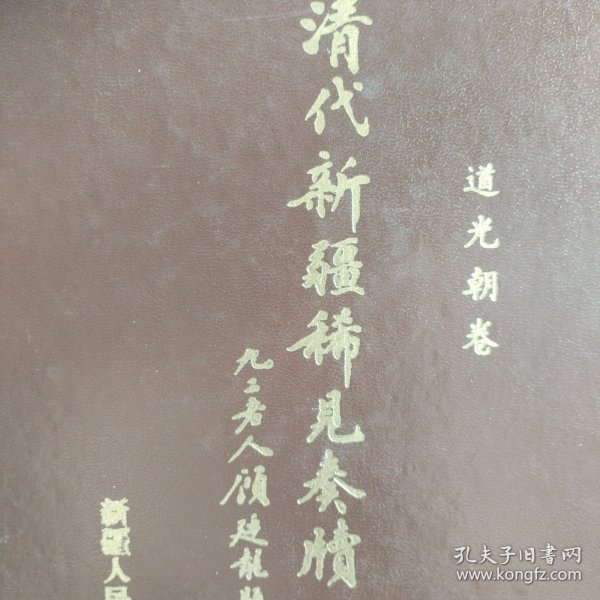 道光朝卷
清代新疆稀见奏牍
九二老人顾廷龙题
新疆人民
孔夫子旧书网
www.kongfz.com